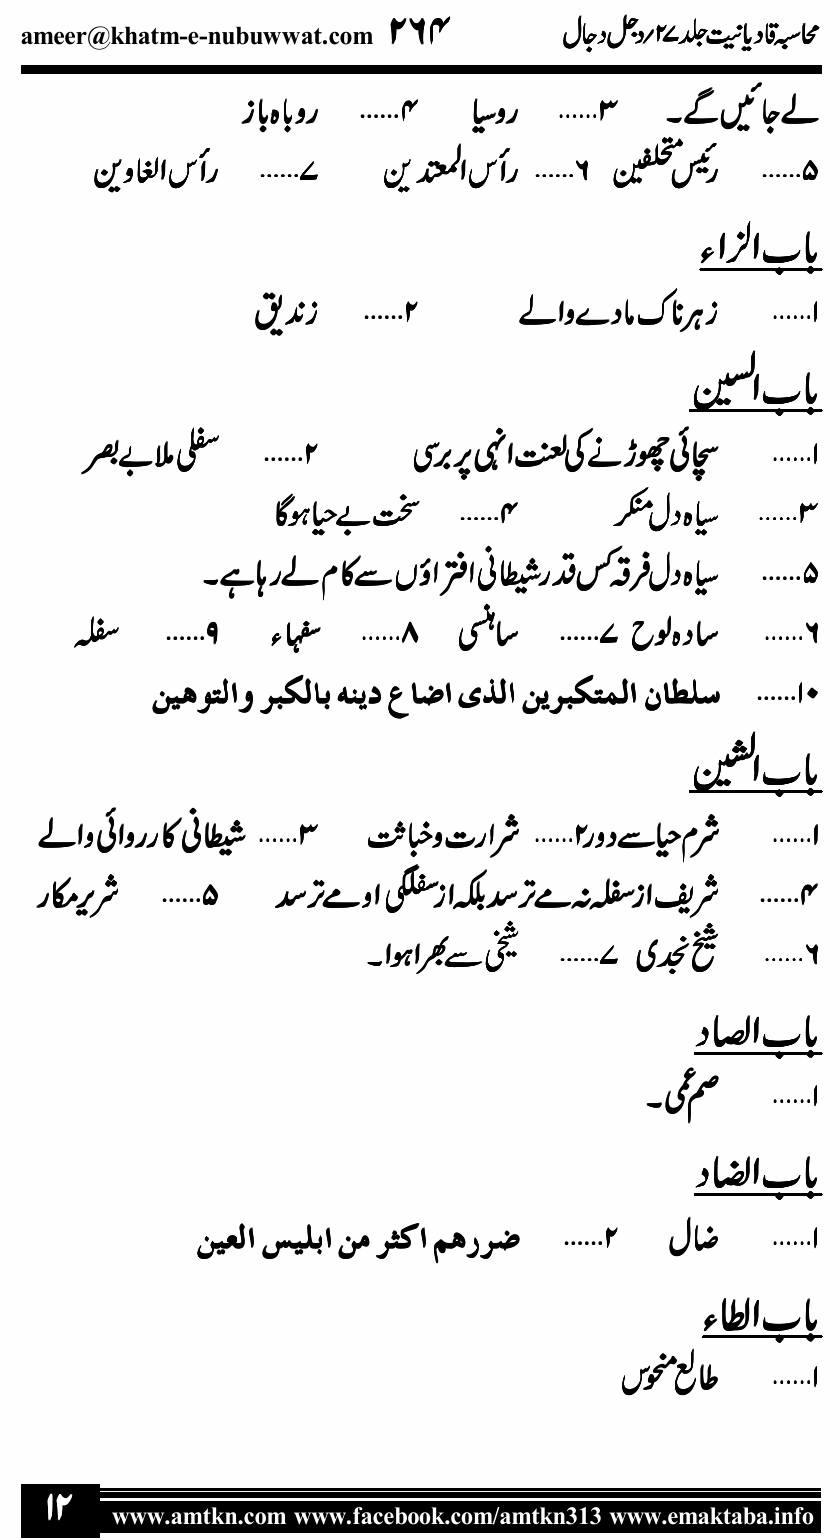 محاسبہ قادیانیت جلد ۲۷/دجل دجال ۲۶۴ ameer@khatm-e-nubuwwat.com
لے جائیں گے۔ ۳...... روسیا ۴...... روباہ باز
۵...... رئیس متحلفین ۶...... رأس المعتدین ۷...... رأس الغاوین
باب الزاء
۱...... زہرناک مادے والے ۲...... زندیق
باب السین
۱...... سچائی چھوڑنے کی لعنت انہی پر برسی ۲...... سفلی ملا بے بصر
۳...... سیاہ دل منکر ۴...... سخت بے حیا ہوگا
۵...... سیاہ دل فرقہ کس قدر شیطانی افتراؤں سے کام لے رہا ہے۔
۶...... سادہ لوح ۷...... سانسی ۸...... سفہاء ۹...... سفلہ
۱۰...... سلطان المتکبرین الذی اضاع دینه بالکبر والتوهین
باب الشین
۱...... شرم حیا سے دور ۲...... شرارت وخباثت ۳...... شیطانی کارروائی والے
۴...... شریف از سفلہ نہ مے ترسد بلکہ از سفلگی او مے ترسد ۵...... شریر مکار
۶...... شیخ نجدی ۷...... شیخی سے بھرا ہوا۔
باب الصاد
۱...... صم عمی۔
باب الضاد
۱...... ضال ۲...... ضررهم اکثر من ابلیس العین
باب الطاء
۱...... طالع منحوس
۱۲ www.amtkn.com www.facebook.com/amtkn313 www.emaktaba.info